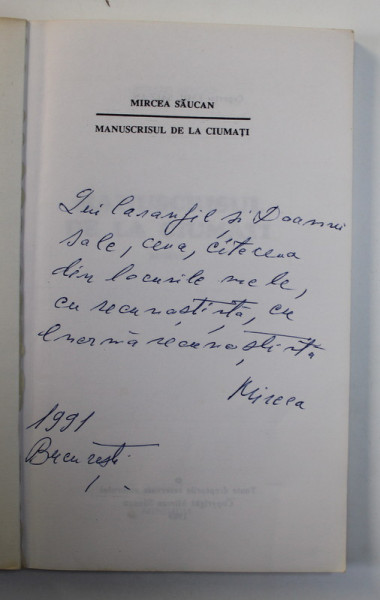 MIRCEA SĂUCAN
MANUSCRISUL DE LA CIUMAȚI
Lui Carangfil, și Doamnei
sale, ceva, cîte ceva
din locurile mele,
cu recunoștință, cu
enormă recunoștință
Mircea
1991
București